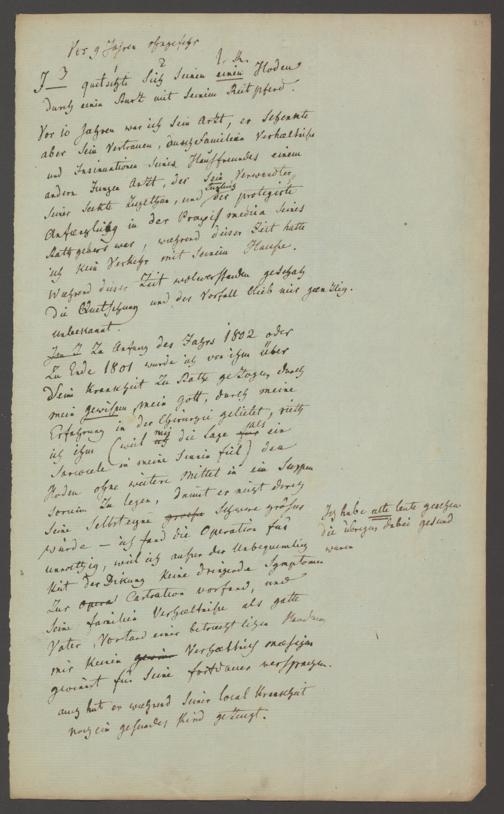 Vor 9 Jahren ohngefehr
J— quetschte sich seinen einen Hoden
durch einen Sturtz mit seinem Reitpferd.
Vor 10 Jahren war ich sein Arzt, er schenkte
aber sein Vertrauen, durch Familien Verhæltniße
und Insinuationen seines Haußfreundes einem
andern jungen Arzt, der sein Verwandter,
seiner Seckte zugethan, und der protegirte
Anfænger in der Praxis medica seines
Rathgebers war, während dieser Zeit hatte
ich kein Verkehr mit seinem Hauße.
Während dieser Zeit wolverstanden geschah
die Quetschung und der Vorfall blieb mir gæntzlig
unbekannt.
Zu Anfang des Jahrs 1802 oder
zu Ende 1801 wurde ich von ihm über
sein Krankheit zu Rathe gezogen, durch
mein gewißen, mein gott, durch meine
Erfahrung in der Chirurgie geleitet, rieth
ich ihm (weil mir die Sage als ein
Sarcocele in meine Sinnen fiel) den
Hoden ohne weitere Mittel in ein Suspen
sorium zu legen, damit er nicht durch
seine Selbsteigne Schwere größer
würde — ich fand die Operation für
unnöthig, weil ich außer der Unbequemlig
keit der Dickung keine dringende Symptomen
zur Castration vorfand, und
seine familien Verhæltniße als gatte
Vater, Vorstand einer betræchtligen Handlung
mir keinen Verhæltnis mæsigen
gewinst für seine fortdauer versprachen.
auch hat er wæhrend seiner local Krankheit
noch ein gesundes Kind gezeugt.
Ich habe alte leute gesehen
die übrigens dabei gesund
waren